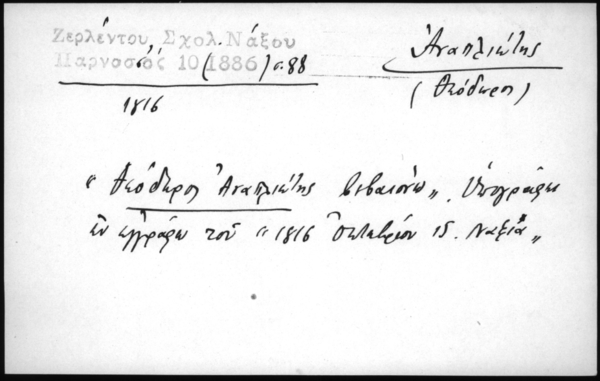 Ζερλέντου, Σχολ. Νάξου
Παρνασσός 10 (1886) σ. 88
Ἀναπλιώτης
(Θεόδωρος)
1816
"Θεόδωρος Ἀναπλιώτης βεβαιώνω„. Ὑπογράφει
ἐν ἐγγράφῳ τοῦ "1816 Ὀκτωβρίου 15. Ναξία„